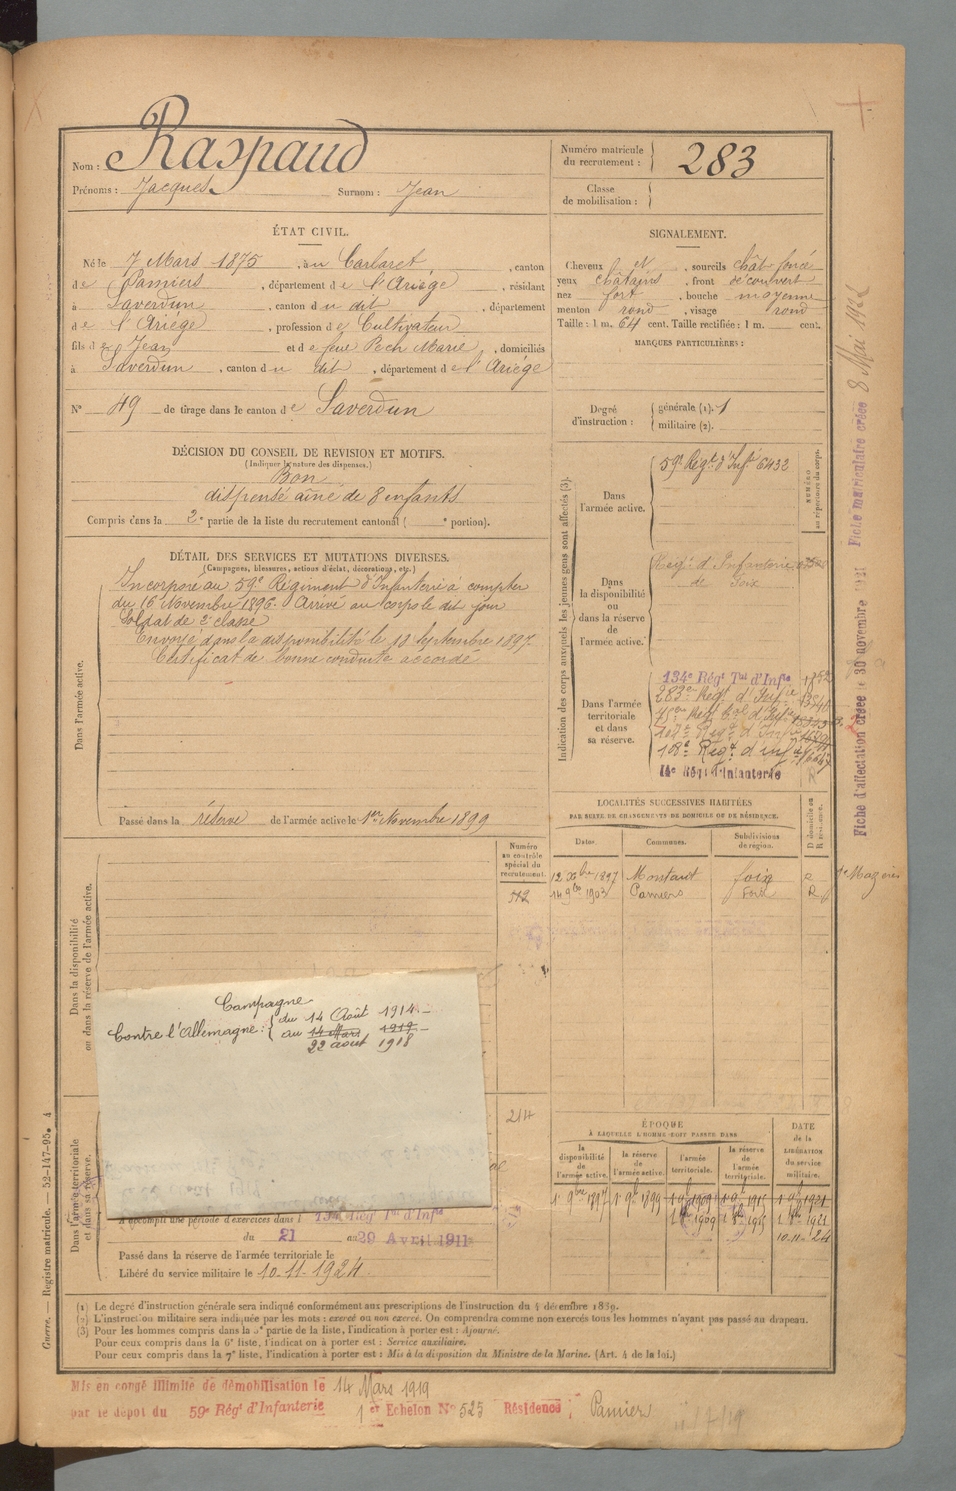 Nom : Raspaud
Prénoms : Jacques Surnom : Jean
Numéro matricule du recrutement : 283
Classe de mobilisation :
ÉTAT CIVIL.
Né le 7 Mars 1875, à u Carlaret, canton
d e Pamiers, département d e l'Ariège, résidant
à Saverdun, canton d u dit, département
d e l'Ariège, profession d e Cultivateur
fils d e Jean et d e feue Pech Marie, domiciliés
à Saverdun, canton d u dit, département d e l'Ariège
N° 49 de tirage dans le canton d e Saverdun
SIGNALEMENT.
Cheveux N, sourcils chât foncé
yeux châtains, front découvert
nez fort, bouche moyenne
menton rond, visage rond
Taille : 1 m. 64 cent. Taille rectifiée : 1 m. cent.
MARQUES PARTICULIÈRES :
Degré d'instruction : générale (1). 1
militaire (2).
DÉCISION DU CONSEIL DE REVISION ET MOTIFS.
(Indiquer la nature des dispenses.)
Bon
dispensé aîné de 8 enfants
Compris dans la 2e partie de la liste du recrutement cantonal ( e portion).
DÉTAIL DES SERVICES ET MUTATIONS DIVERSES.
(Campagnes, blessures, actions d'éclat, décorations, etc.)
Dans l'armée active.
Incorporé au 59e Régiment d'Infanterie à compter
du 16 Novembre 1896. Arrivé au corps le dit jour
Soldat de 2e classe
Envoyé dans la disponibilité le 18 Septembre 1897
Certificat de bonne conduite accordé
Passé dans la réserve de l'armée active le 1er Novembre 1899
Indication des corps auxquels les jeunes gens sont affectés (3).
NUMÉRO au répertoire du corps.
Dans l'armée active.
59e Régt d'Infie 6432
Dans la disponibilité ou dans la réserve de l'armée active.
Régt d'Infanterie
de Foix
Dans l'armée territoriale et dans sa réserve.
134e Régt Tal d'Infie
283e Régt d'Infie
108e Régt d'inf
14e Régt d'Infanterie
R
LOCALITÉS SUCCESSIVES HABITÉES
PAR SUITE DE CHANGEMENTS DE DOMICILE OU DE RÉSIDENCE.
Dates. Communes. Subdivisions de région. D domicile ou R résidence.
12 Xbre 1897 Montaut Foix
14 9bre 1903 Pamiers Foix R
Dans la disponibilité ou dans la réserve de l'armée active.
Numéro au contrôle spécial du recrutement.
512
214
Campagne
Contre l'Allemagne : du 14 Août 1914
au 14 Mars 1919
22 août 1918
Dans l'armée territoriale et dans sa réserve.
A accompli une période d'exercices dans l 134e Régt Tal d'Infie
du 21 au 29 Avril 1911
Passé dans la réserve de l'armée territoriale le
Libéré du service militaire le 10-11-1924
ÉPOQUE
À LAQUELLE L'HOMME DOIT PASSER DANS
la disponibilité de l'armée active. la réserve de l'armée active. l'armée territoriale. la réserve de l'armée territoriale.
DATE de la LIBÉRATION du service militaire.
1er 9bre 1897 1er 9bre 1899
1909 1915 1921
10-11-24
(1) Le degré d'instruction générale sera indiqué conformément aux prescriptions de l'instruction du 4 décembre 1889.
(2) L'instruction militaire sera indiquée par les mots : exercé ou non exercé. On comprendra comme non exercés tous les hommes n'ayant pas passé au drapeau.
(3) Pour les hommes compris dans la 5e partie de la liste, l'indication à porter est : Ajourné.
Pour ceux compris dans la 6e liste, l'indication à porter est : Service auxiliaire.
Pour ceux compris dans la 7e liste, l'indication à porter est : Mis à la disposition du Ministre de la Marine. (Art. 4 de la loi.)
Mis en congé illimité de démobilisation le 14 Mars 1919
par le dépôt du 59e Régt d'Infanterie 1er Echelon N° 525 Résidence : Pamiers
Guerre. — Registre matricule. — 52-147-95. 4
Fiche d'affectation créée le 30 novembre 1921 Fiche matriculaire créée 8 Mai 192